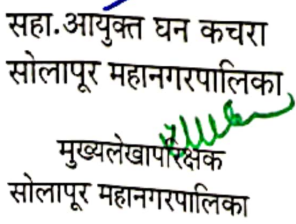 सहा.आयुक्त घन कचरा
सोलापूर महानगरपालिका
मुख्यलेखापरिक्षक
सोलापूर महानगरपालिका